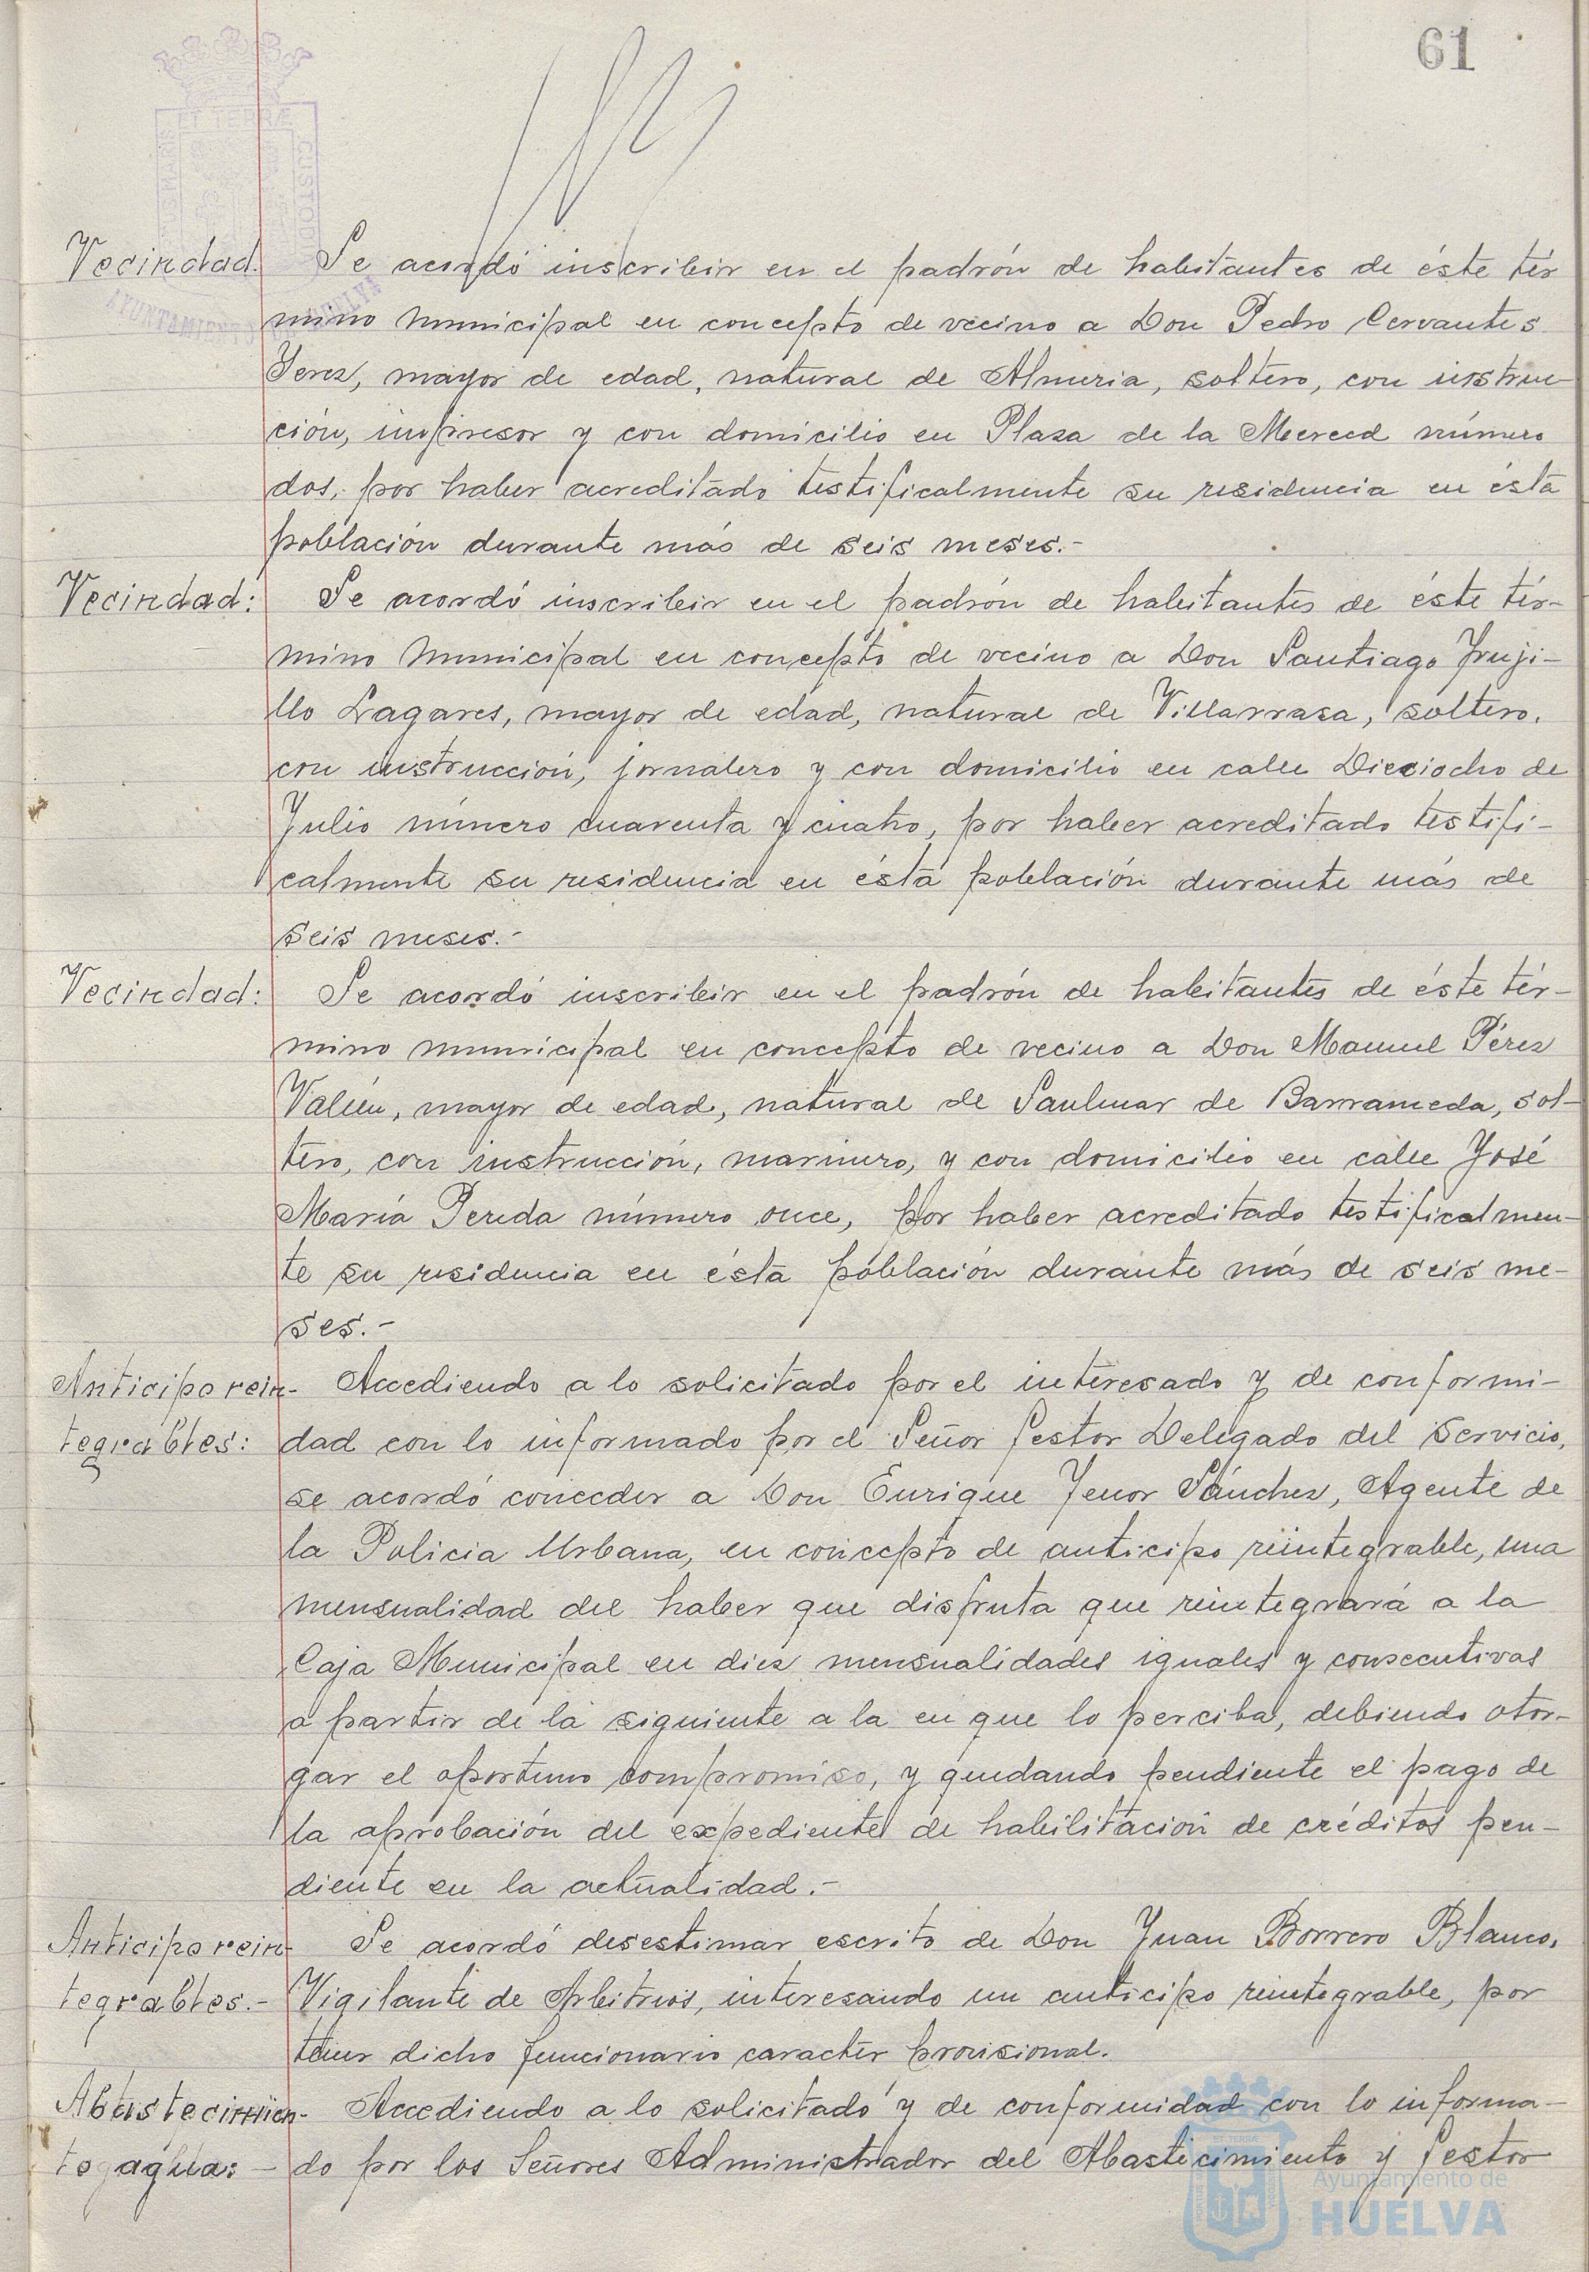 61
Vecindad. Se acordó inscribir en el padrón de habitantes de éste tér
mino municipal en concepto de vecino a Don Pedro Cervantes
Yerez, mayor de edad, natural de Almeria, soltero, con instruc-
ción, impresor y con domicilio en Plaza de la Merced número
dos, por haber acreditado testificalmente su residencia en ésta
población durante más de seis meses.-
Vecindad: Se acordó inscribir en el padrón de habitantes de éste tér-
mino municipal en concepto de vecino a Don Santiago Truji-
llo Lagares, mayor de edad, natural de Villarrasa, soltero,
con instrucción, jornalero y con domicilio en calle Dieciocho de
Julio número cuarenta y cuatro, por haber acreditado testifi-
calmente su residencia en ésta población durante más de
seis meses.-
Vecindad: Se acordó inscribir en el padrón de habitantes de éste tér-
mino municipal en concepto de vecino a Don Manuel Pérez
mayor de edad, natural de Sanlucar de Barrameda, sol-
tero, con instrucción, marinero, y con domicilio en calle José
María Pereda número once, por haber acreditado testificalmen-
te su residencia en ésta población durante más de seis me-
ses.-
Anticipo rein- Accediendo a lo solicitado por el interesado y de conformi-
tegrables: dad con lo informado por el Señor Gestor Delegado del Servicio,
se acordó conceder a Don Enrique Tenor Sánchez, Agente de
la Policia Urbana, en concepto de anticipo reintegrable, una
mensualidad del haber que disfruta que reintegrará a la
Caja Municipal en diez mensualidades iguales y consecutivas
a partir de la siguiente a la en que lo perciba, debiendo otor-
gar el oportuno compromiso, y quedando pendiente el pago de
la aprobación del expediente de habilitación de créditos pen-
diente en la actualidad.-
Anticipo rein- Se acordó desestimar escrito de Don Juan Borrero Blanco,
tegrables.- Vigilante de Arbitrios, interesando un anticipo reintegrable, por
tener dicho funcionario caracter provisional.
Abastecimien- Accediendo a lo solicitado y de conformidad con lo informa-
to agua: - do por los Señores Administrador del Abastecimiento y Gestor
Ayuntamiento de
HUELVA